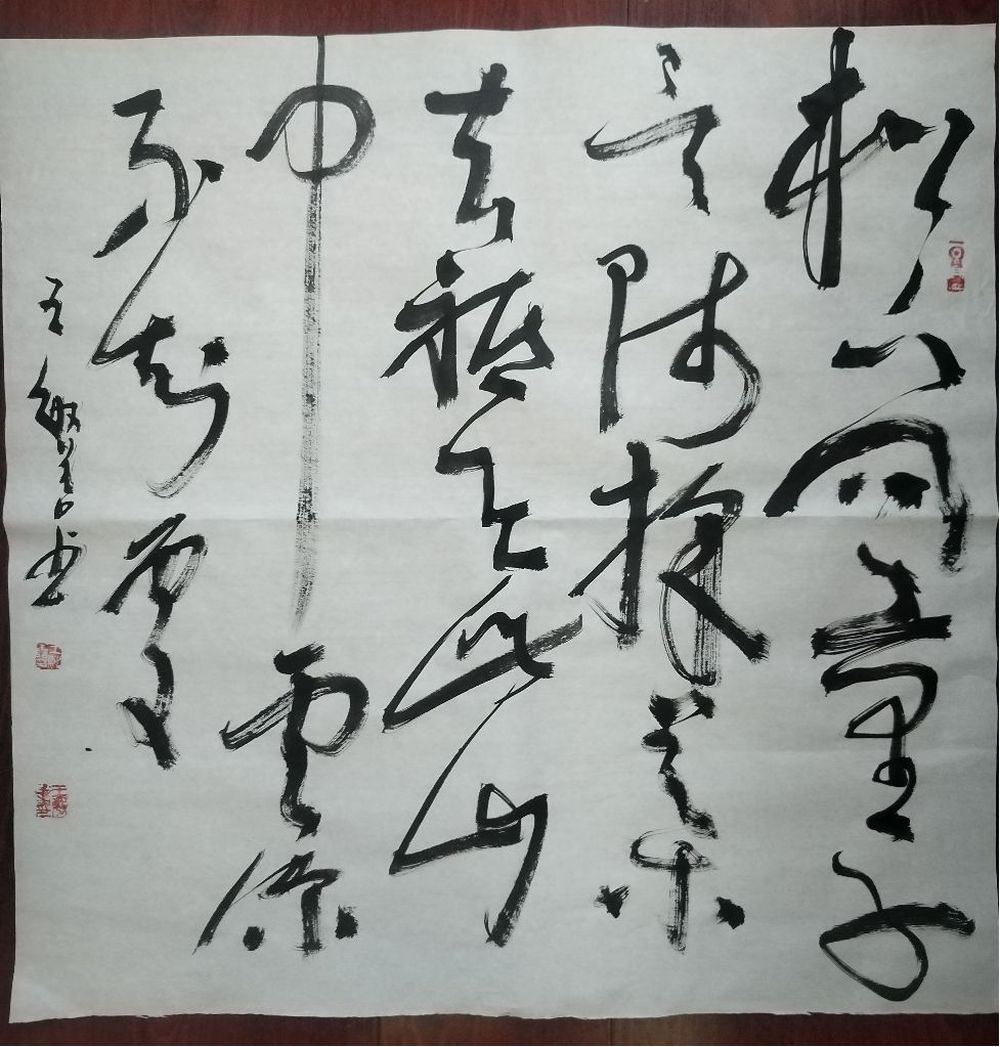 松下問童子
言師採藥
去祇在此山
中雲深
不知處
王敏書